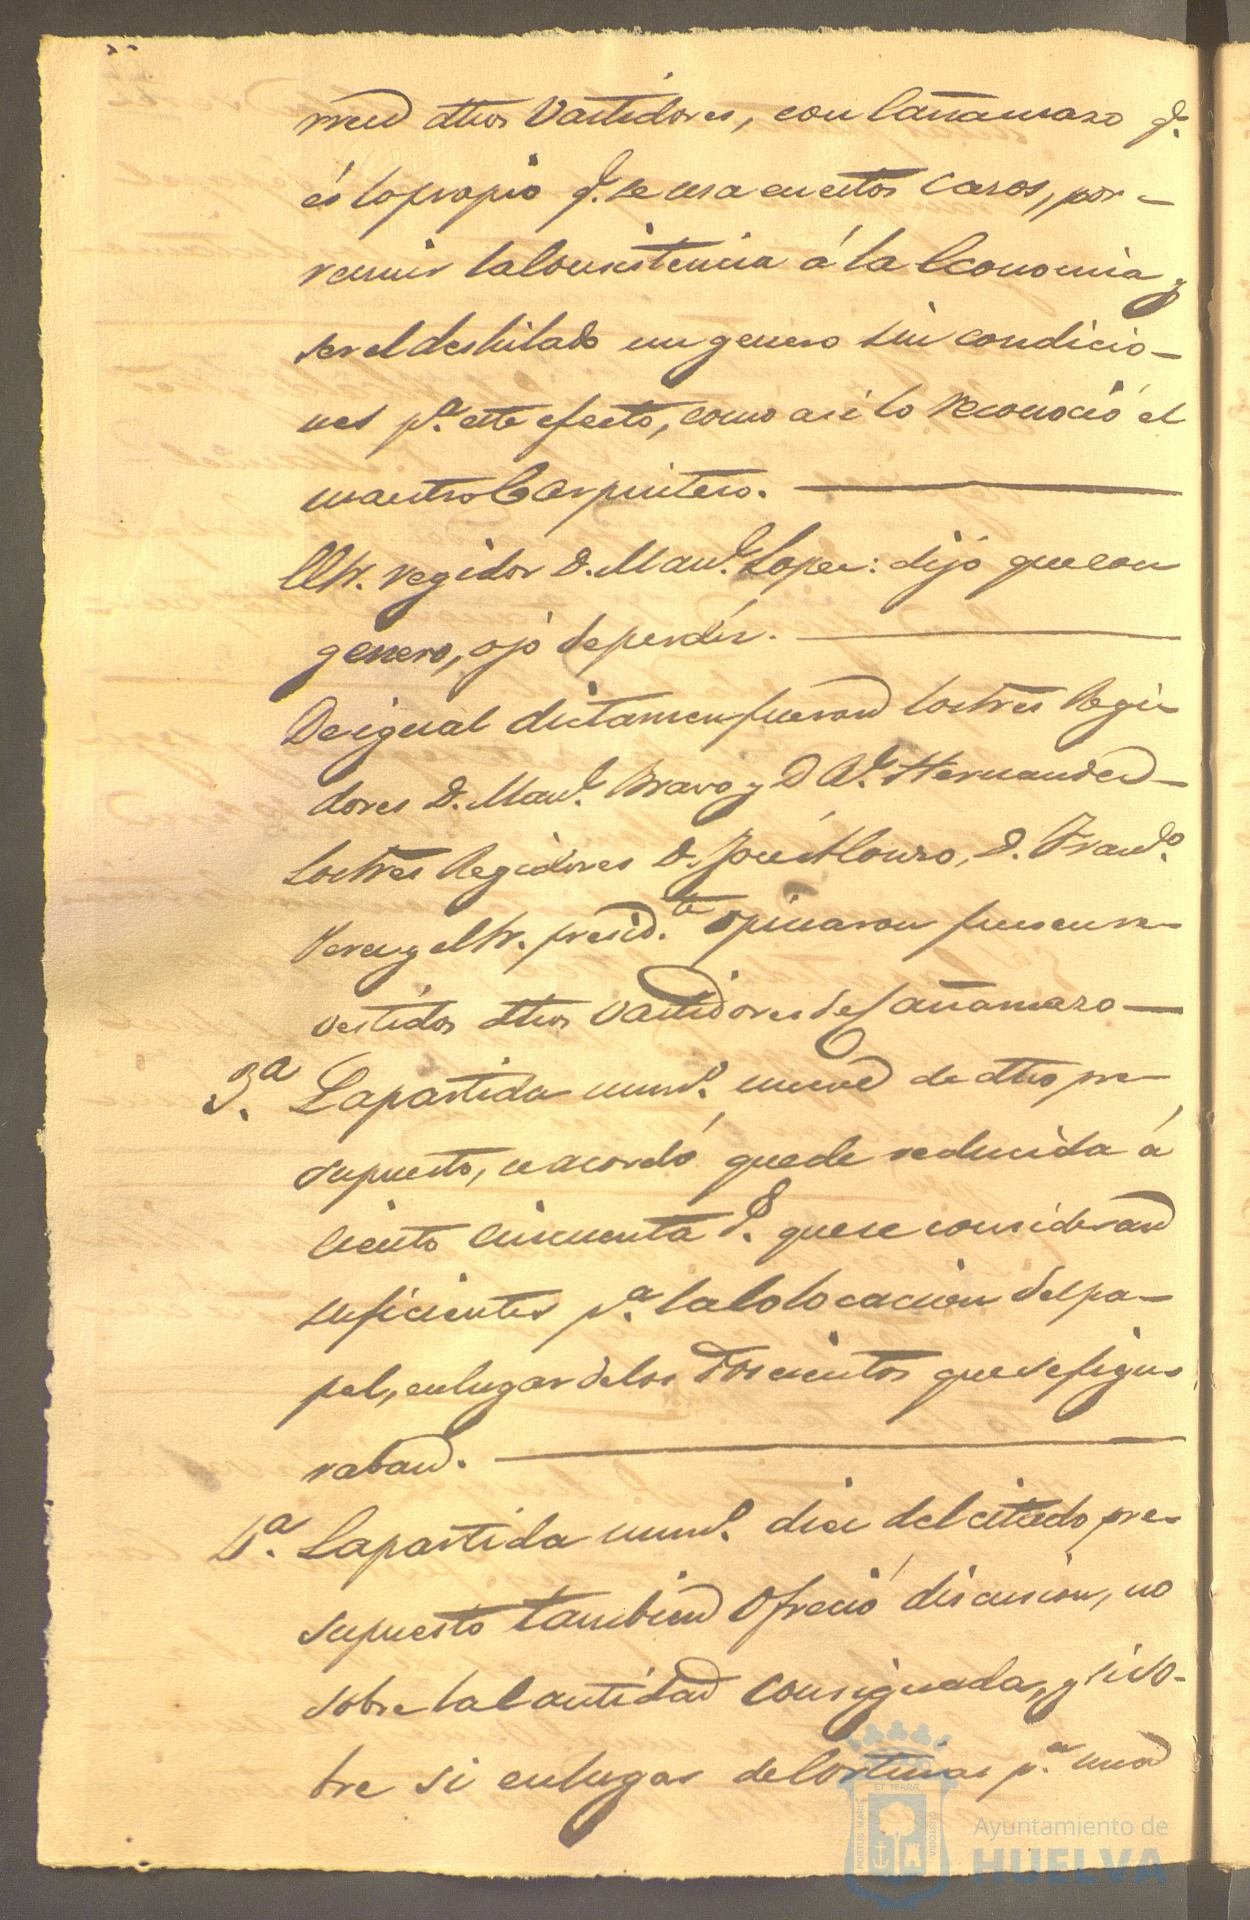 dhos Vastidores, con Cañamazo q.
és lo propio q. se usa en estos casos, por
reunir la Consistencia á la Economia y
ser el deshilado un genero sin condicio-
nes p.ª este efecto, como asi lo reconoció el
maestro Carpintero.
El Sr. regidor D. Man.l Lopez: dijo que con
genero, ojo de perdiz.
De igual dictamen fueron los tres Regi-
dores D. Man.l Bravo y D. A.l Hernandez
Los tres Regidores D. José Alonzo, D. Fran.co
Perez y el Sr. presid.te opinaron fuesen re-
vestidos dhos Vastidores de Cañamazo
3.ª La partida num.o nueve de dho pre-
supuesto, se acordó quede reducida á
Ciento Cincuenta r.s que se consideran
suficientes p.ª la Colocacion del pa-
pel, en lugar de los Doscientos que se figu-
raban.
4.ª La partida num.o diez del citado pre-
supuesto tambien Ofreció discusion, no
sobre la Cantidad Consignada, y si so-
bre si en lugar de Cortinas p.ª
PORTUS MARIS ET TERRÆ CUSTODIA
Ayuntamiento de
HUELVA